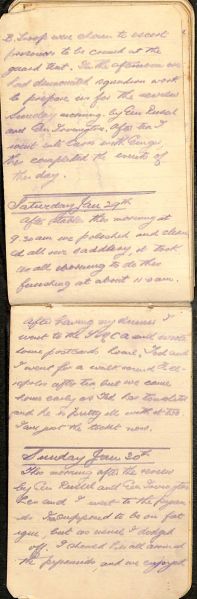 B Troop were chosen to escort
prisoners to be tried at the
guard that. In the afternoon we
had dismounted squadron work
to prepare us for the review
Sunday morning by Gen Russel
and Gen Lovington. After tea I
went into Cairo with Ginger,
this completed the events of
the day.
Saturday Jan 29th
After Stables this morning at
9.30 am we polished and clean
ed all our saddlery it took
us all morning to do this
finishing at about 11.30am.
After having my dinner I
went to the YMCA and wrote
some postcards home. Ted and
I went for a walk round Heli-
opolis after tea but we came
home early as Ted has
and he is pretty ill with it too
I am just the ticket now.
Sunday Jan 30th
This morning after the review
by Gen Russel and Gen
Len and I went to the Pyram
ids. I'm supposed to be on fat
igue, but as usual I dodged
off. I showed Len all around
the pyramids, and we enjoyed